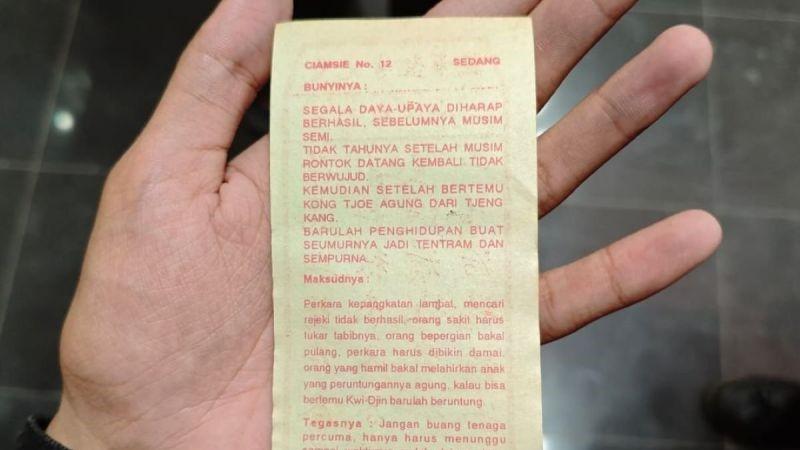 CIAMSIE No. 12 SEDANG
BUNYINYA :
SEGALA DAYA-UPAYA DIHARAP
BERHASIL, SEBELUMNYA MUSIM
SEMI.
TIDAK TAHUNYA SETELAH MUSIM
RONTOK DATANG KEMBALI TIDAK
BERWUJUD.
KEMUDIAN SETELAH BERTEMU
KONG TJOE AGUNG DARI TJENG
KANG.
BARULAH PENGHIDUPAN BUAT
SEUMURNYA JADI TENTRAM DAN
SEMPURNA.
Maksudnya :
Perkara kepangkatan lambat, mencari
rejeki tidak berhasil, orang sakit harus
tukar tabibnya, orang bepergian bakal
pulang, perkara harus dibikin damai,
orang yang hamil bakal melahirkan anak
yang peruntungannya agung, kalau bisa
bertemu Kwi-Djin barulah beruntung.
Tegasnya : Jangan buang tenaga
percuma, hanya harus menunggu